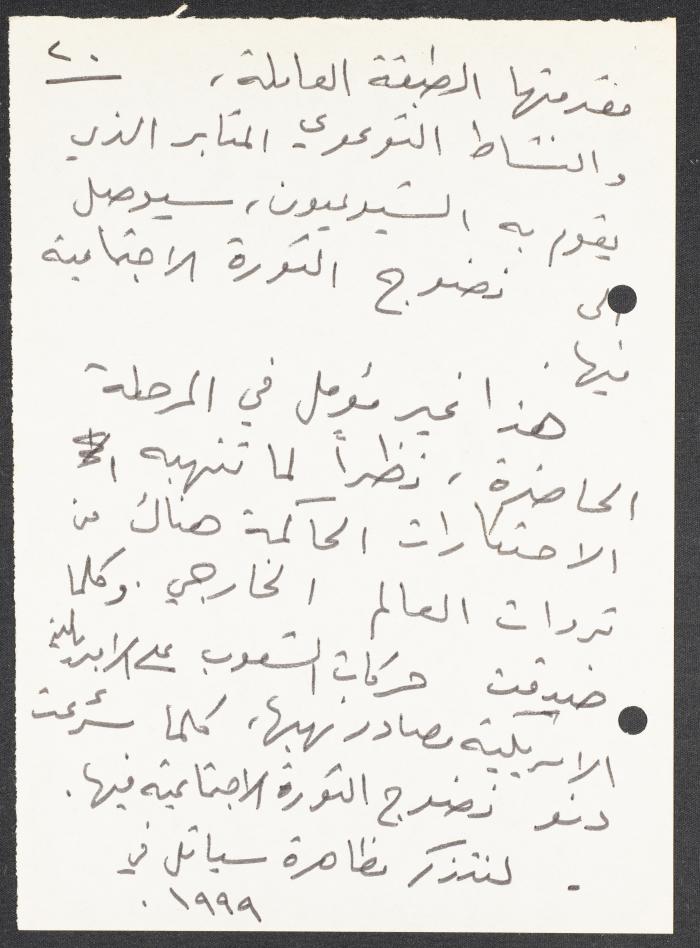 ٢٠
مقدمتها الطبقة العاملة،
والنشاط التوعوي المثابر الذي
يقوم به الشيوعيون، سيوصل
الى نضوج الثورة الاجتماعية
فيها.
هذا غير مؤمل في المرحلة
الحاضرة، نظراً لما تنهبه
الاحتكارات الحاكمة هناك من
ثروات العالم الخارجي. وكلما
ضيقت حركات الشعوب على الامبريالية
الامريكية مصادر نهبها، كلما سرّعت
دنو نضوج الثورة الاجتماعية فيها.
- لنتذكر مظاهرة سياتل في
١٩٩٩.